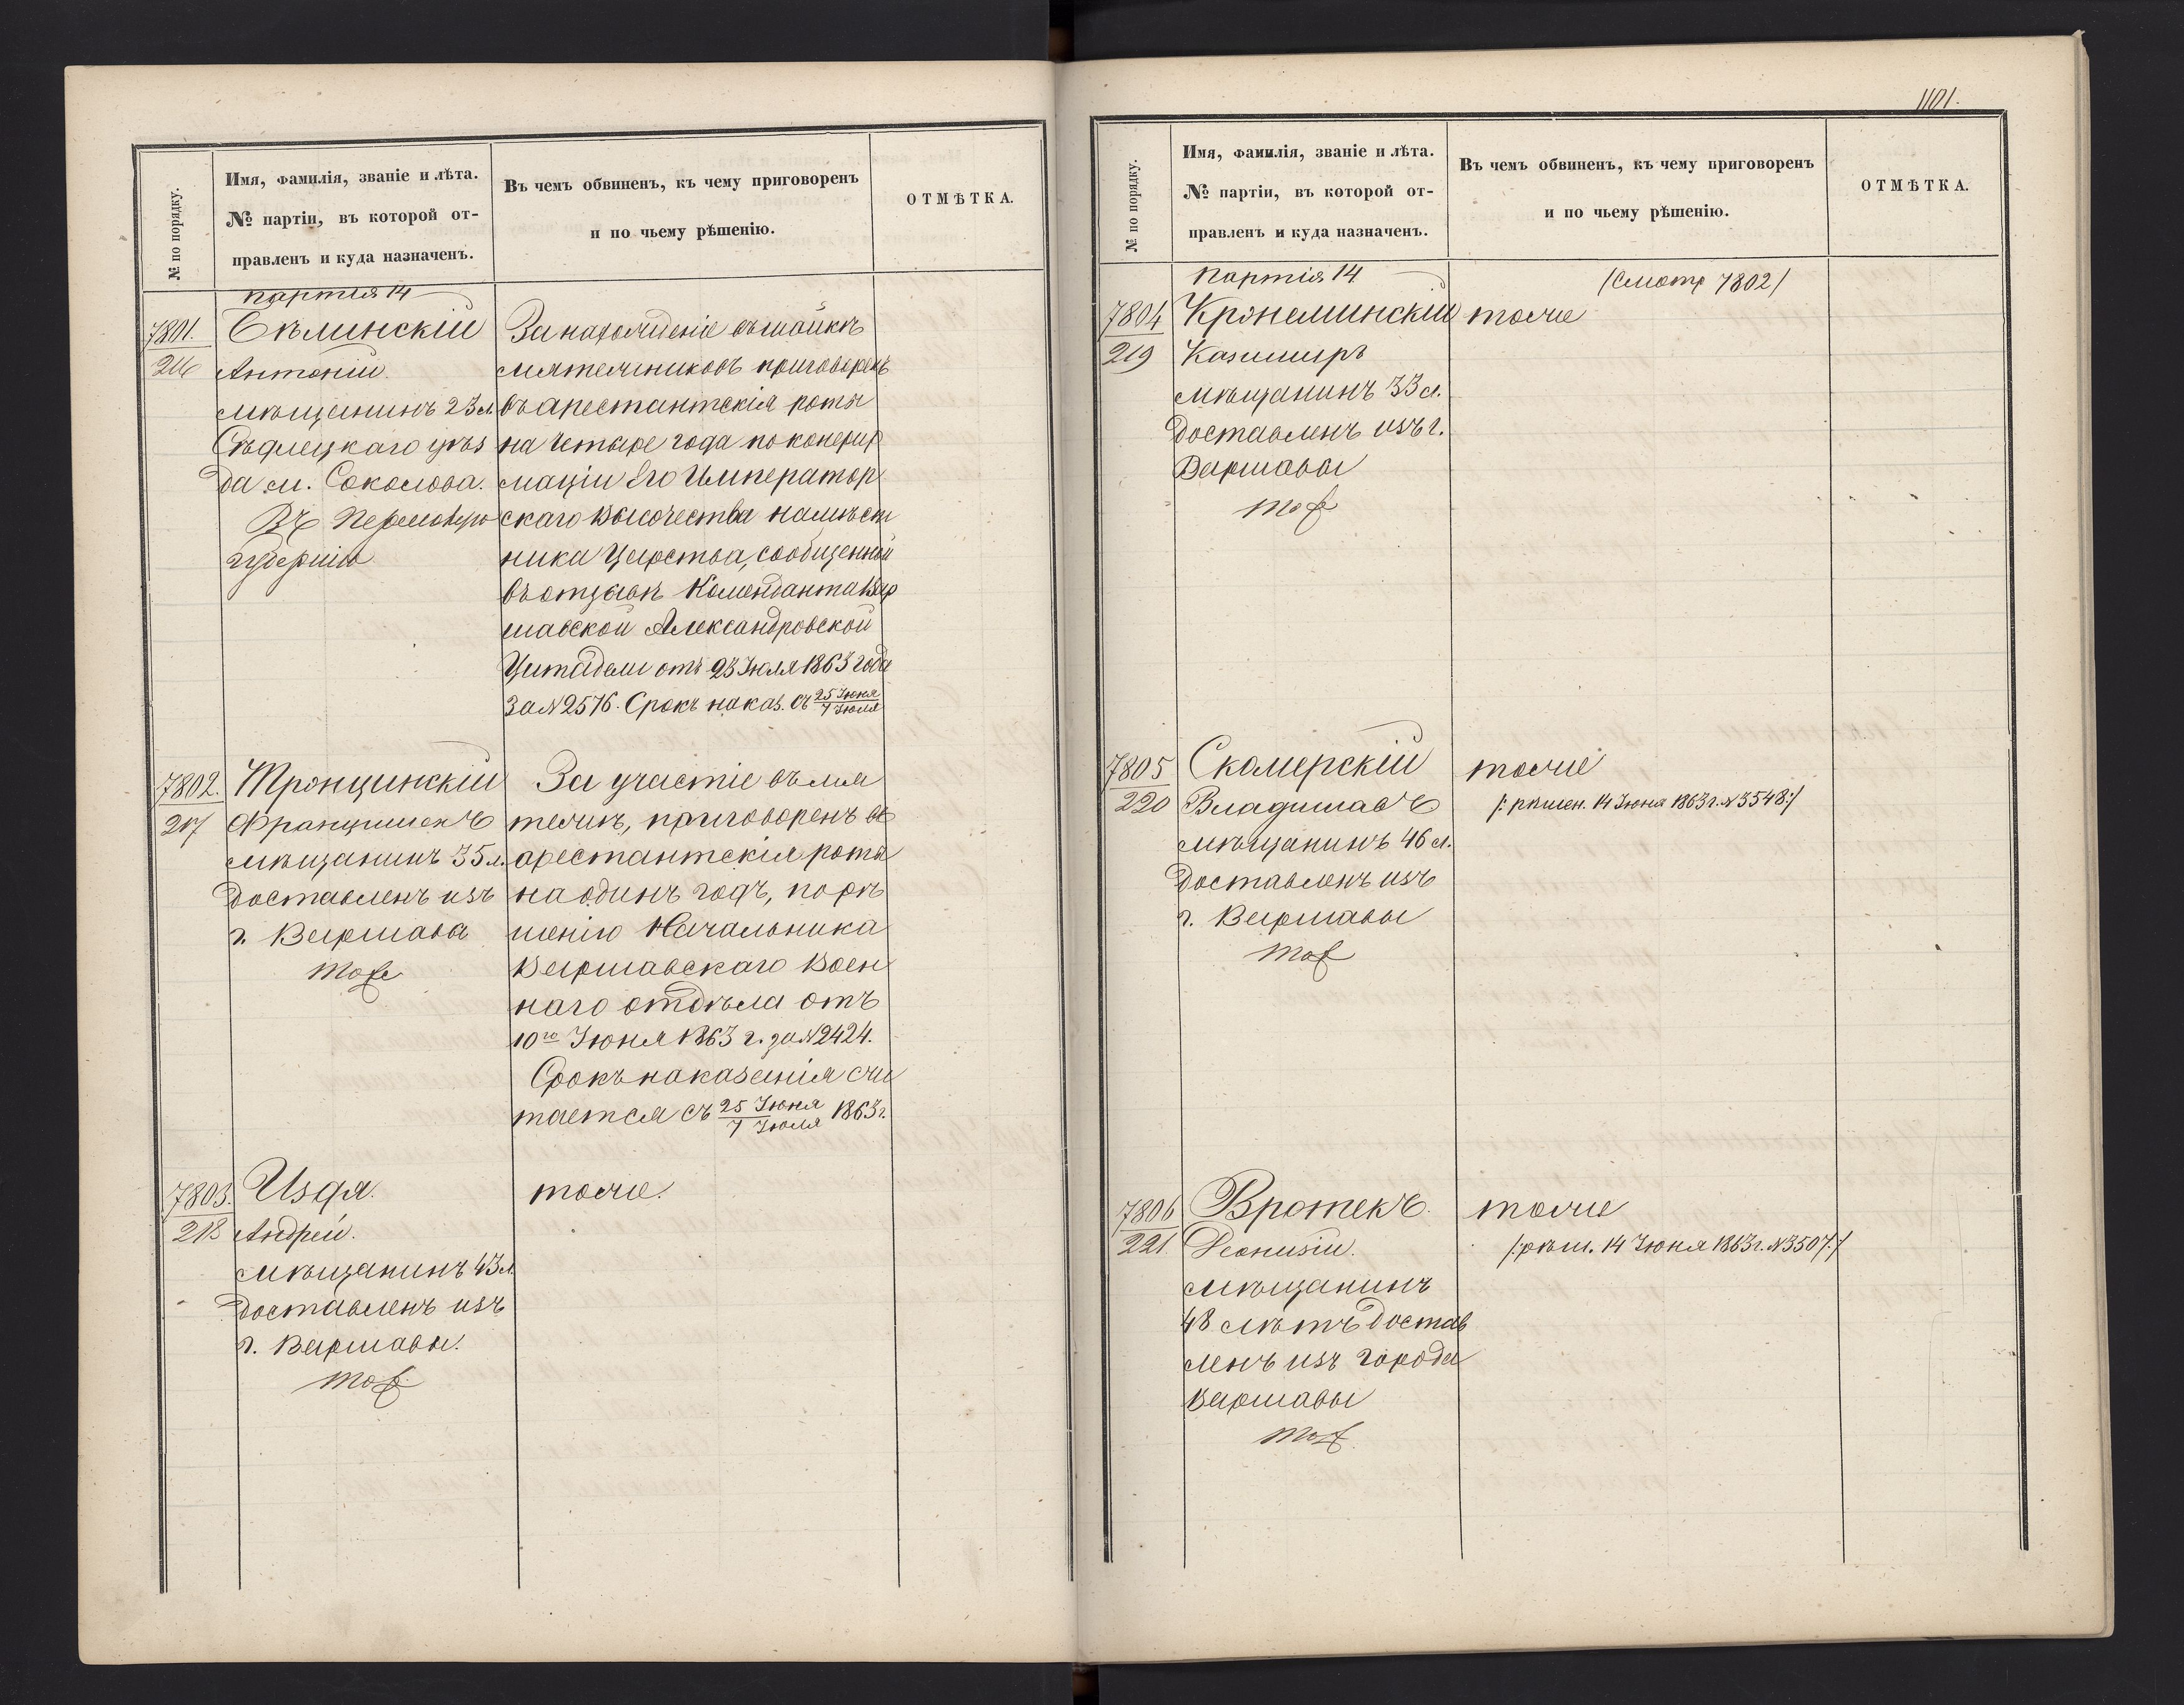 № по порядку.
Имя, фамилія, званіе и лѣта.
№ партіи, въ которой от-
правленъ и куда назначенъ.
Въ чемъ обвиненъ, къ чему приговоренъ
и по чьему рѣшенію.
ОТМѢТКА.
партія 14
7801.
216
Бѣлинскій
Антоній.
мѣщанинъ 23 л.
Сѣдлецкаго уѣз
да м. Соколова.
Въ
губернію
За нахожденіе въ шайкѣ
мятежниковъ приговоренъ
въ арестантскія роты
на четыре года по конфир
маціи Его Император
скаго Высочества намѣст
ника Царства, сообщенной
въ отзывѣ Коменданта Вар
шавской Александровской
Цитадели отъ 23 Іюля 1863 года
За № 2576. Срокъ наказ. съ 25 Іюня
7 Іюля
7802.
217
Тронцинскій
Францишекъ
мѣщанинъ 35 л.
Доставленъ изъ
г. Варшава
тоже
За участіе въ мя
тежѣ, приговоренъ въ
арестантскія роты
на одинъ годъ, по рѣ
шенію Начальника
Варшавскаго Воен
наго отдѣла отъ
10го Іюня 1863 г. за № 2424.
Срокъ наказанія счи
тается съ 25 Іюня
7 Іюля 1863 г.
7803.
218
Издя.
Андрей.
мѣщанинъ 43 л.
доставленъ изъ
г. Варшавы.
тож.
тоже.
1101.
№ по порядку.
Имя, фамилія, званіе и лѣта.
№ партіи, въ которой от-
правленъ и куда назначенъ.
Въ чемъ обвиненъ, къ чему приговоренъ
и по чьему рѣшенію.
ОТМѢТКА.
партія 14
/Смотр 7802/
7804
219
Кронеминскій
Казимиръ
мѣщанинъ 33 л.
доставленъ изъ г.
Варшавы
тож
тоже
7805
220
Скамерскій
Владиславъ
мѣщанинъ 46 л.
Доставленъ изъ
г. Варшавы
тож
тоже
/: рѣшен. 14 Іюня 1863 г. № 3548 :/
7806
221.
Вротекъ.
Деонизій.
мѣщанинъ
48 лѣтъ достав
ленъ изъ города
Варшавы
тож.
тоже
/: рѣш. 14 Іюня 1863 г. № 3507 :/